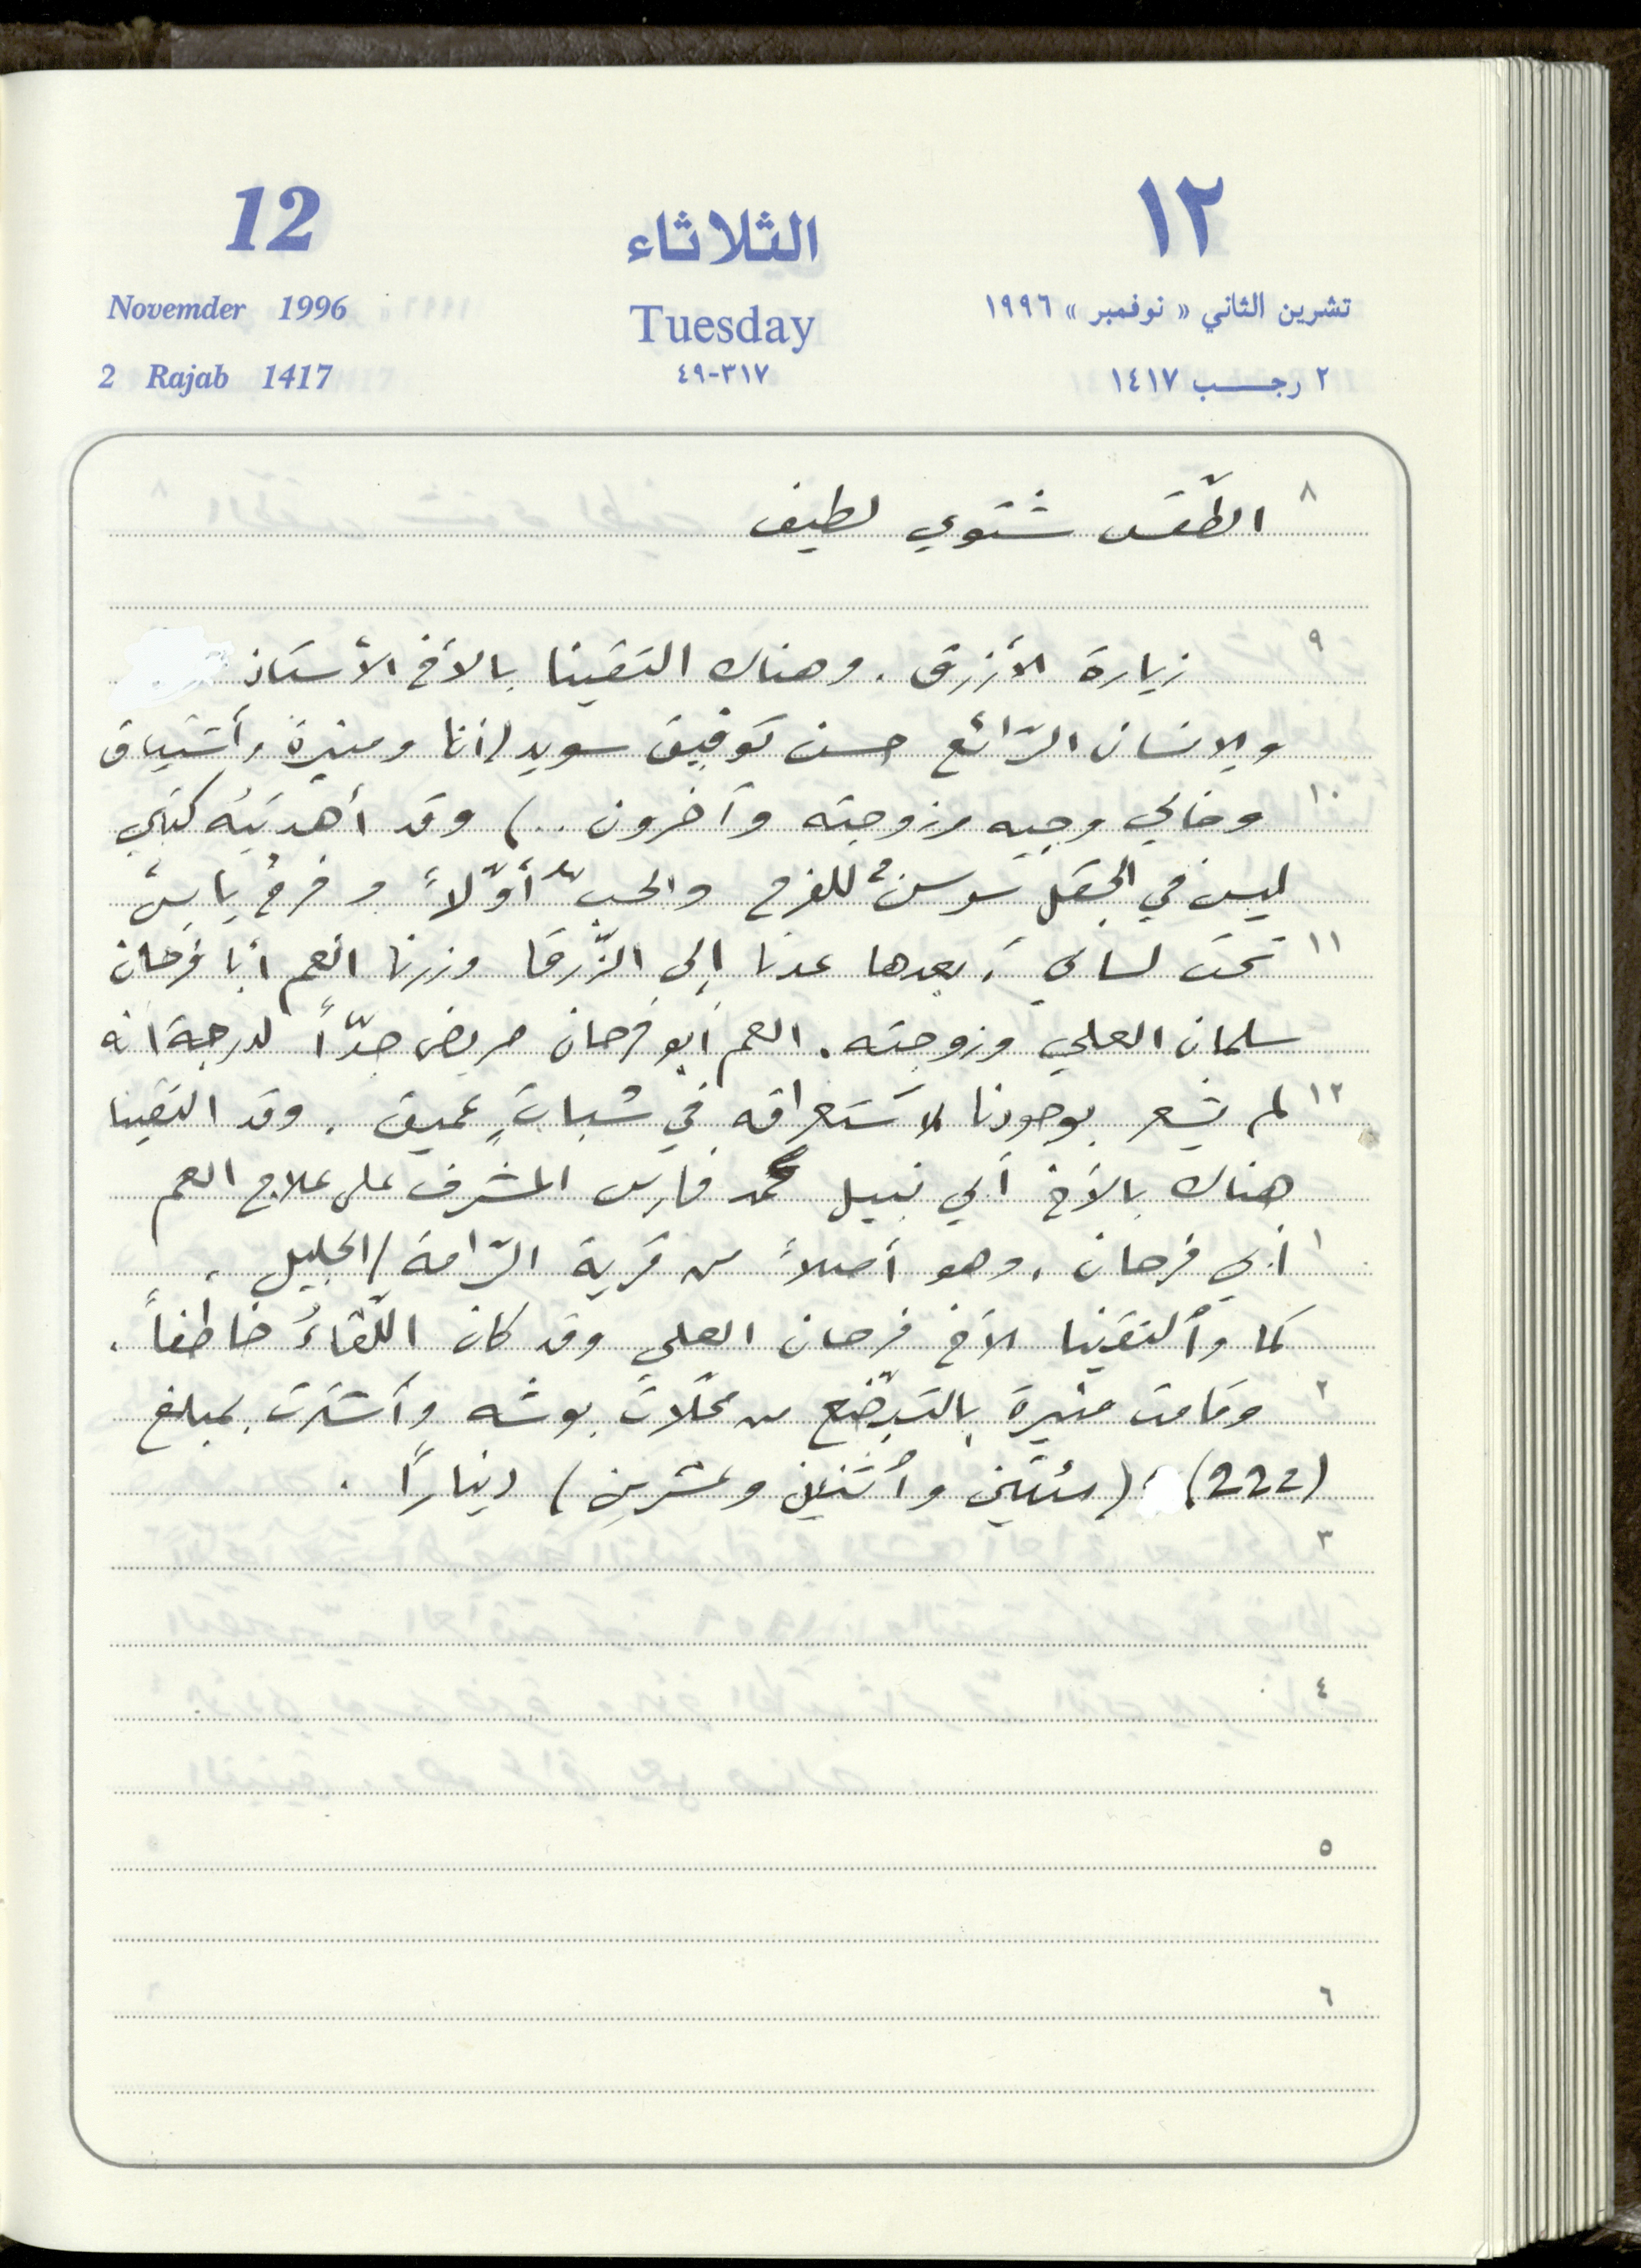 12
الثلاثاء
١٢
Novemder 1996
Tuesday
تشرين الثاني « نوفمبر » ١٩٩٦
2 Rajab 1417
٣١٧-٤٩
٢ رجب ١٤١٧
٨ الطّقس شتوي لطيف
٩ زيارة الأزرق. وهناك التقينا بالأخ الأستاذ
والإنسان الرّائع حسن توفيق سويد (أنا ومنيرة وأشتياق
١٠ وخالي وجيه وزوجته وآخرون ..) وقد أهديته كتابي
ليس في الحقل سوسنٌ للفرح والحبّ أوّلاً وفرحٌ يابسٌ
١١ تحت لساني، بعدها عدنا إلى الزّرقا وزرنا العم أبا فرحان
سلمان العلي وزوجته. العم أبو فرحان مريض جدّاً لدرجة انه
١٢ لم يشعر بوجودنا لاستغراقه في سباتٍ عميق. وقد التقينا
هناك بالأخ أبي نبيل محمد فارس المشرف على علاج العم
١ أبي فرحان، وهو أصلاً من قرية الرّامة / الجليل،
كما وألتقينا الأخ فرحان العلي وقد كان اللّقاءُ خاطفاً.
٢ وقامت منيرة بالتبضّع من محلّات بوشه وأشترت بمبلغ
(222) (مئتين وأثنين وعشرين) ديناراً.
٣
٤
٥
٦